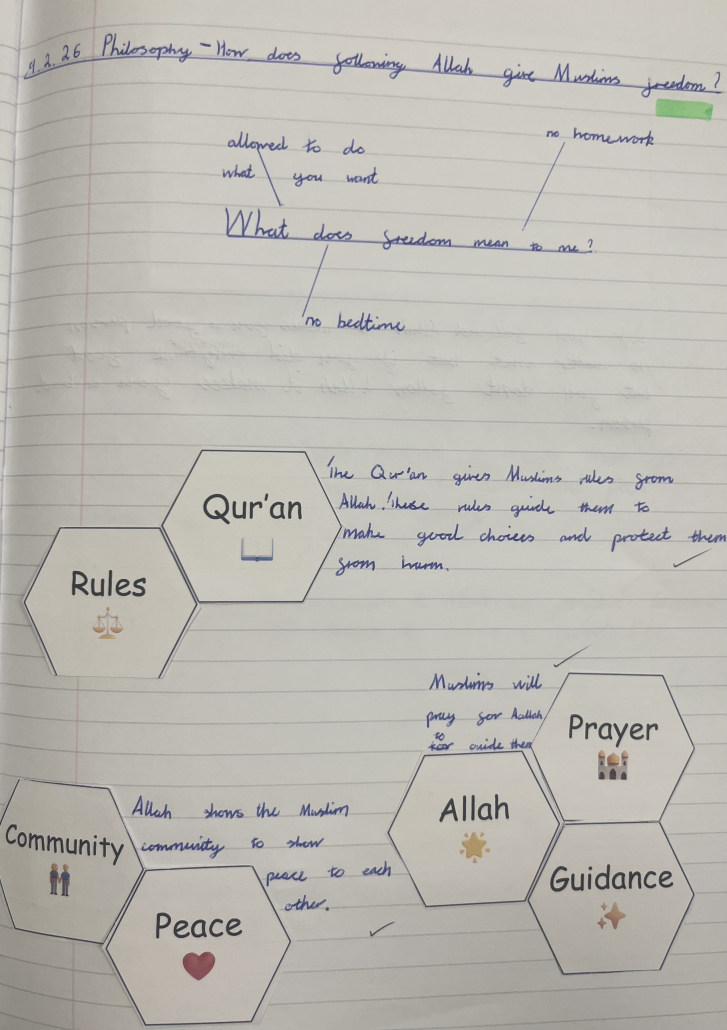 4.2.26 Philosophy - How does following Allah give Muslims freedom?
allowed to do
what you want
no homework
What does freedom mean to me?
no bedtime
Qur'an
The Qur'an gives Muslims rules from
Allah. These rules guide them to
make good choices and protect them
from harm.
Rules
Muslims will
pray for Aallah
to
guide them
Prayer
Allah
Guidance
Community
Allah shows the Muslim
community to show
peace to each
other.
Peace